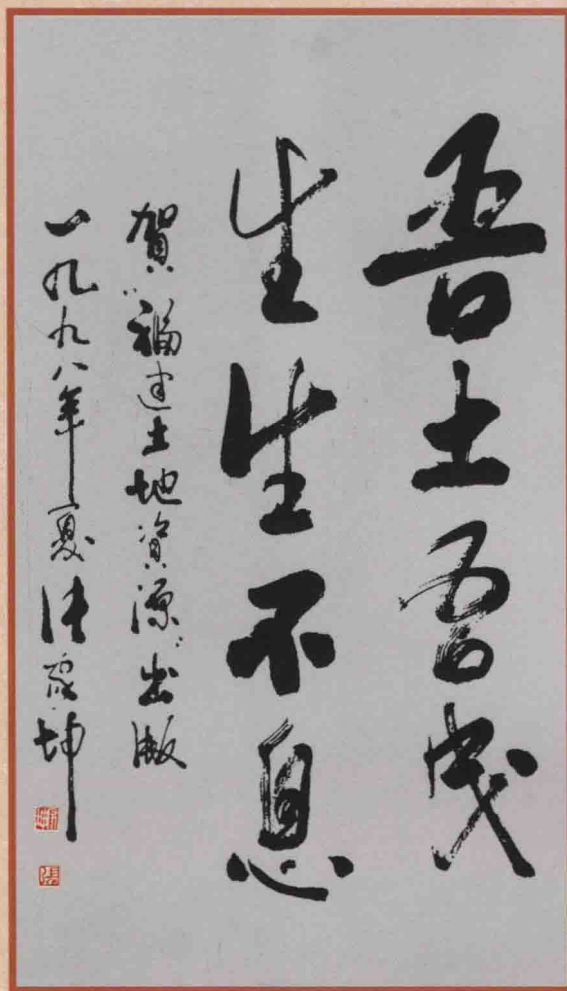 吾土吾民
生生不息
賀《福建土地資源》出版
一九九八年夏 張家坤